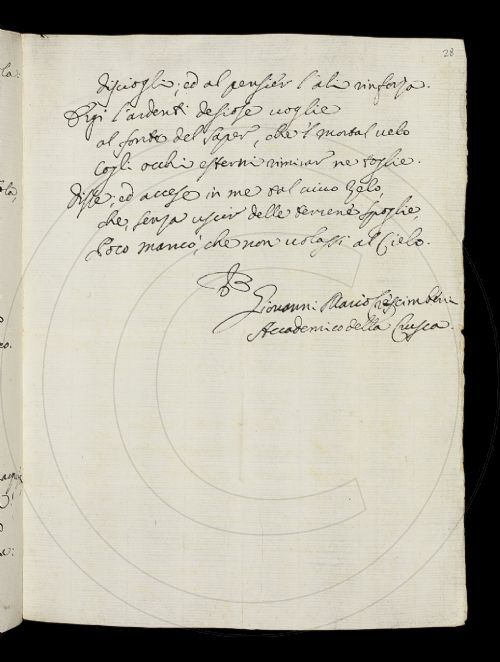 28
disciogli; ed al pensier l'ali rinforza.
Ergi l'ardenti desiose voglie
al fonte del saper, che 'l mortal velo
cogli occhi esterni rimirar ne toglie.
Disse; ed accese in me tal vivo zelo,
che, senza uscir delle terrene spoglie,
Poco mancò, che non volassi al Cielo.
Giovanni Mario Crescimbeni
Accademico della Crusca.